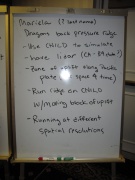 Mariela (? last name)
Dragons back pressure ridge
- Use CHILD to simulate
- Wave linear
- Zone of uplift along Pacific
plate (in space & time)
- Run ridge on CHILD
w/moving block of uplift
- Running at different
spatial resolutions